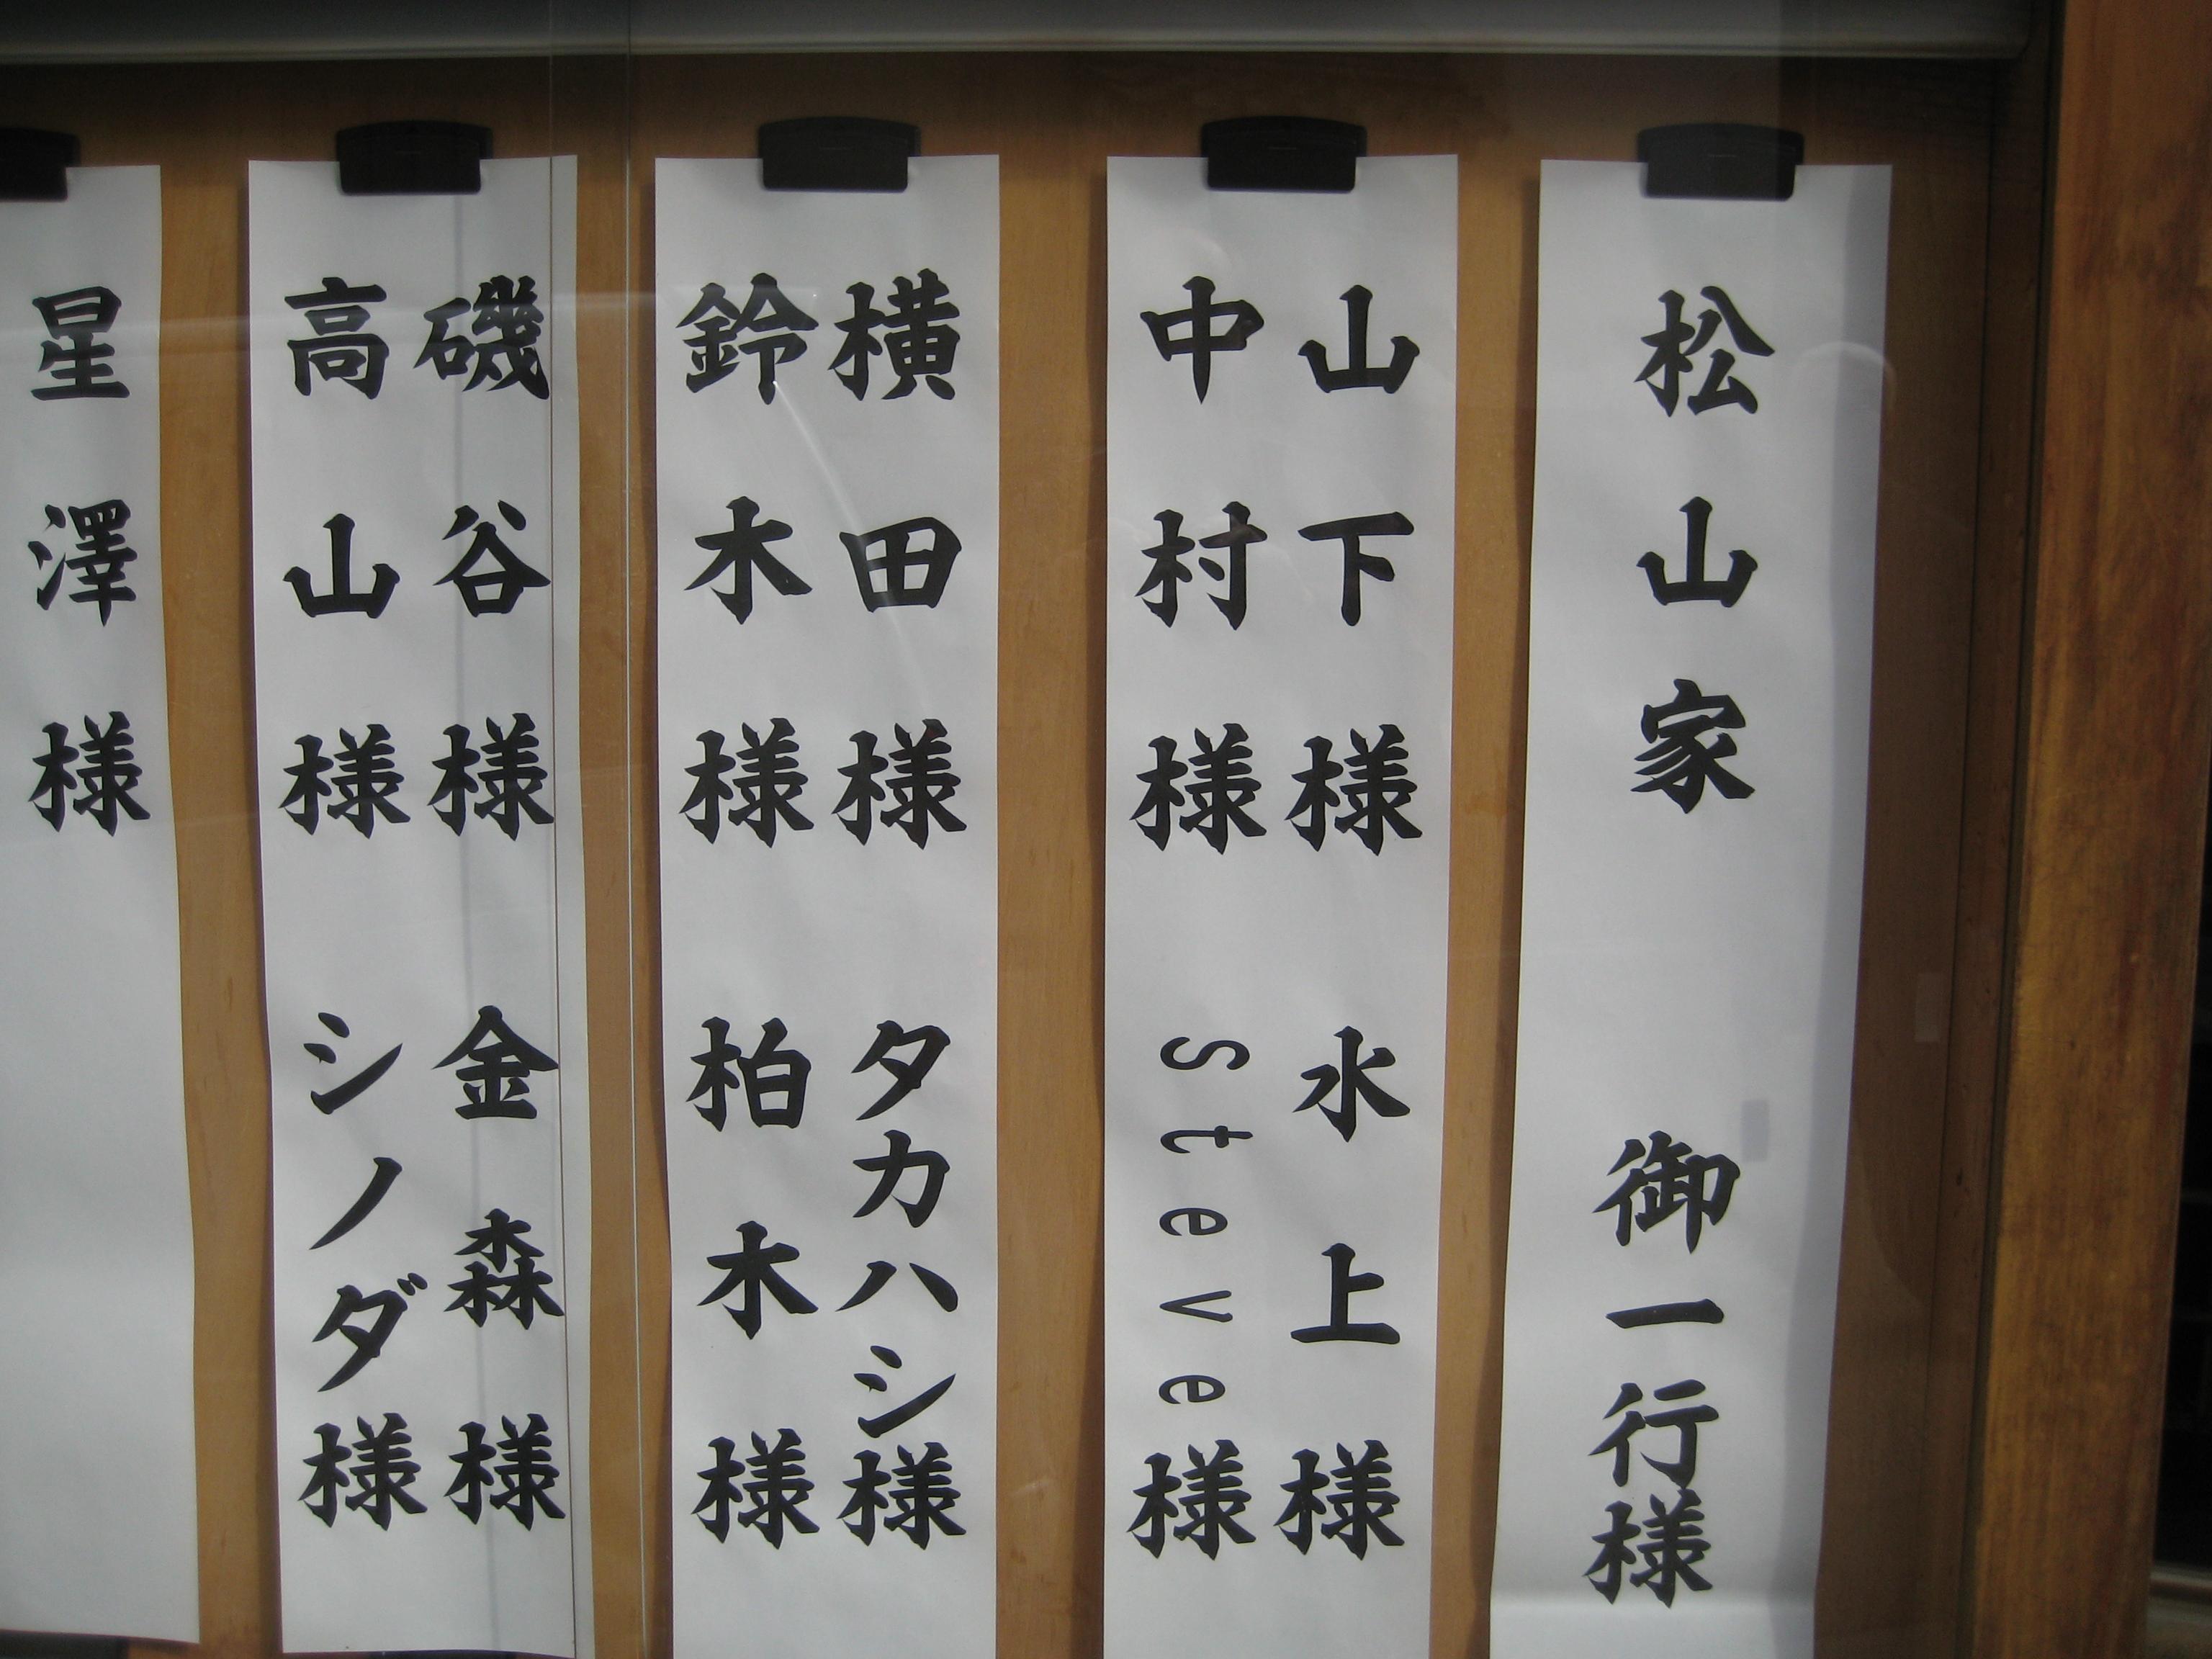 松山家 御一行様
山下様 水上様
中村様 Steve様
横田様 タカハシ様
鈴木様 柏木様
磯谷様 金森様
高山様 シノダ様
星澤様